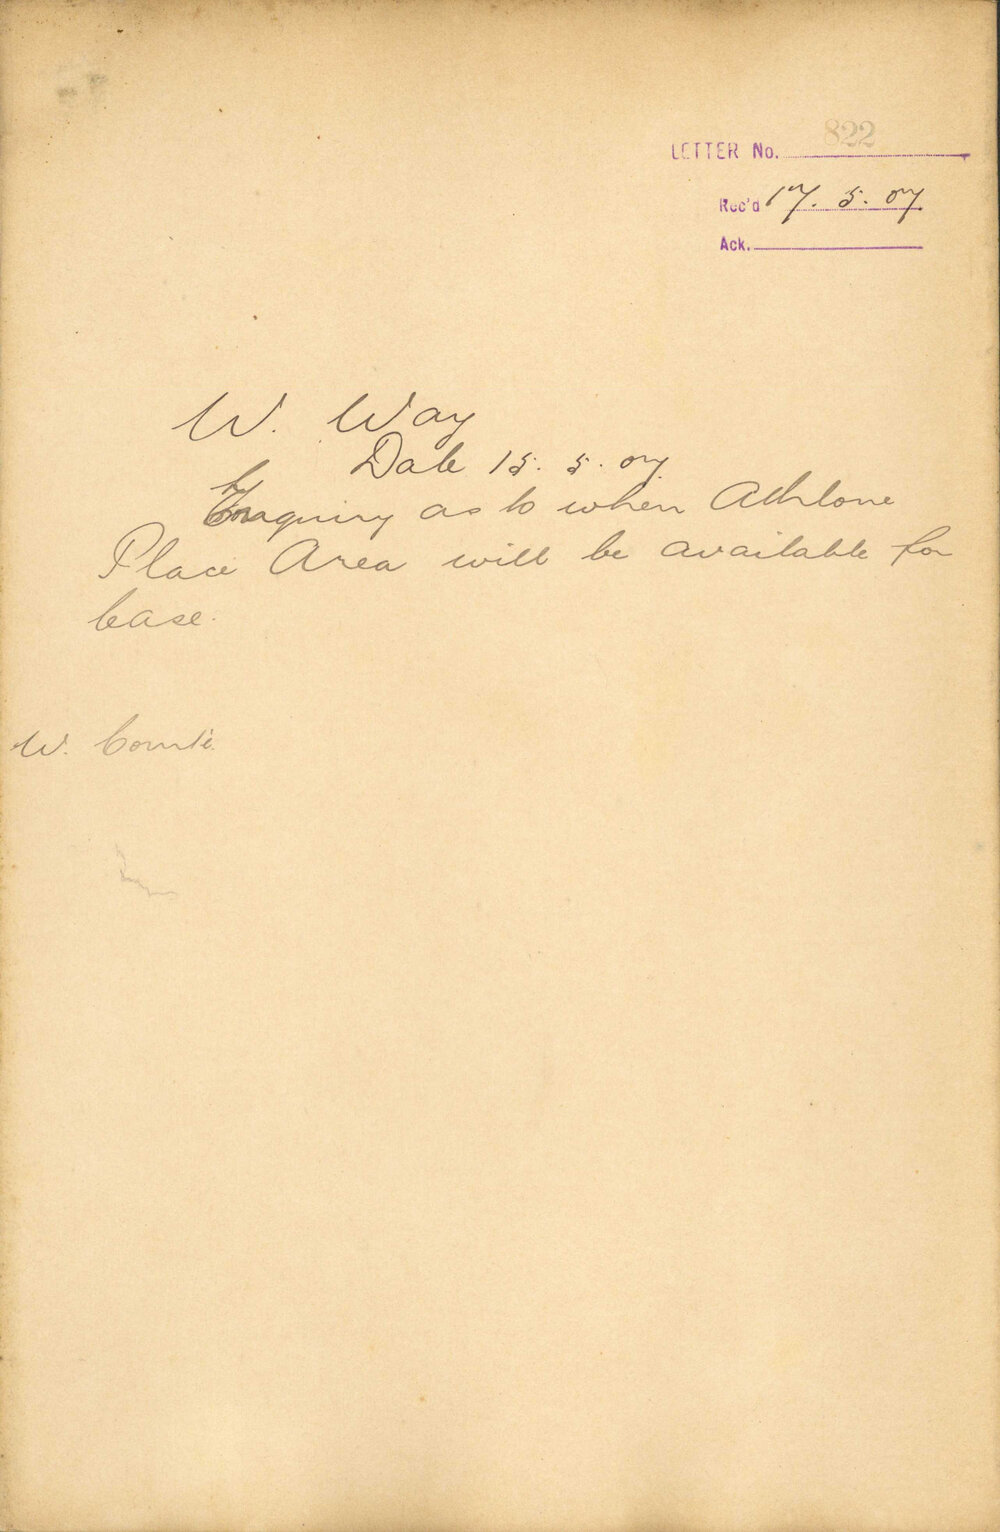 822
LETTER No.
Rec'd 17. 5. 07
Ack.
W. Way
Date 15. 5. 07
Enquiry as to when Athlone
Place Area will be available for
lease.
W. Comte.